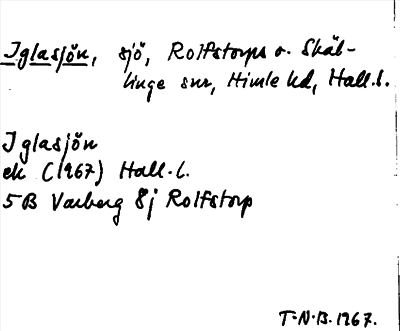 Iglasjön, sjö, Rolfstorps o. Skäl-
linge snr, Himle hd, Hall.l.
Iglasjön
ek (1967) Hall.l.
5B Varberg 8j Rolfstorp
T.N.B. 1967.